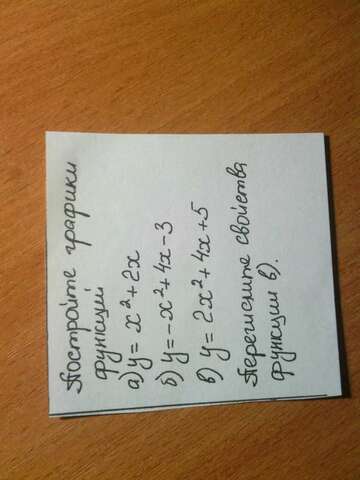 Постройте графики
функций
а) y = x² + 2x
б) y = -x² + 4x - 3
в) y = 2x² + 4x + 5
Перечислите свойства
функции в).